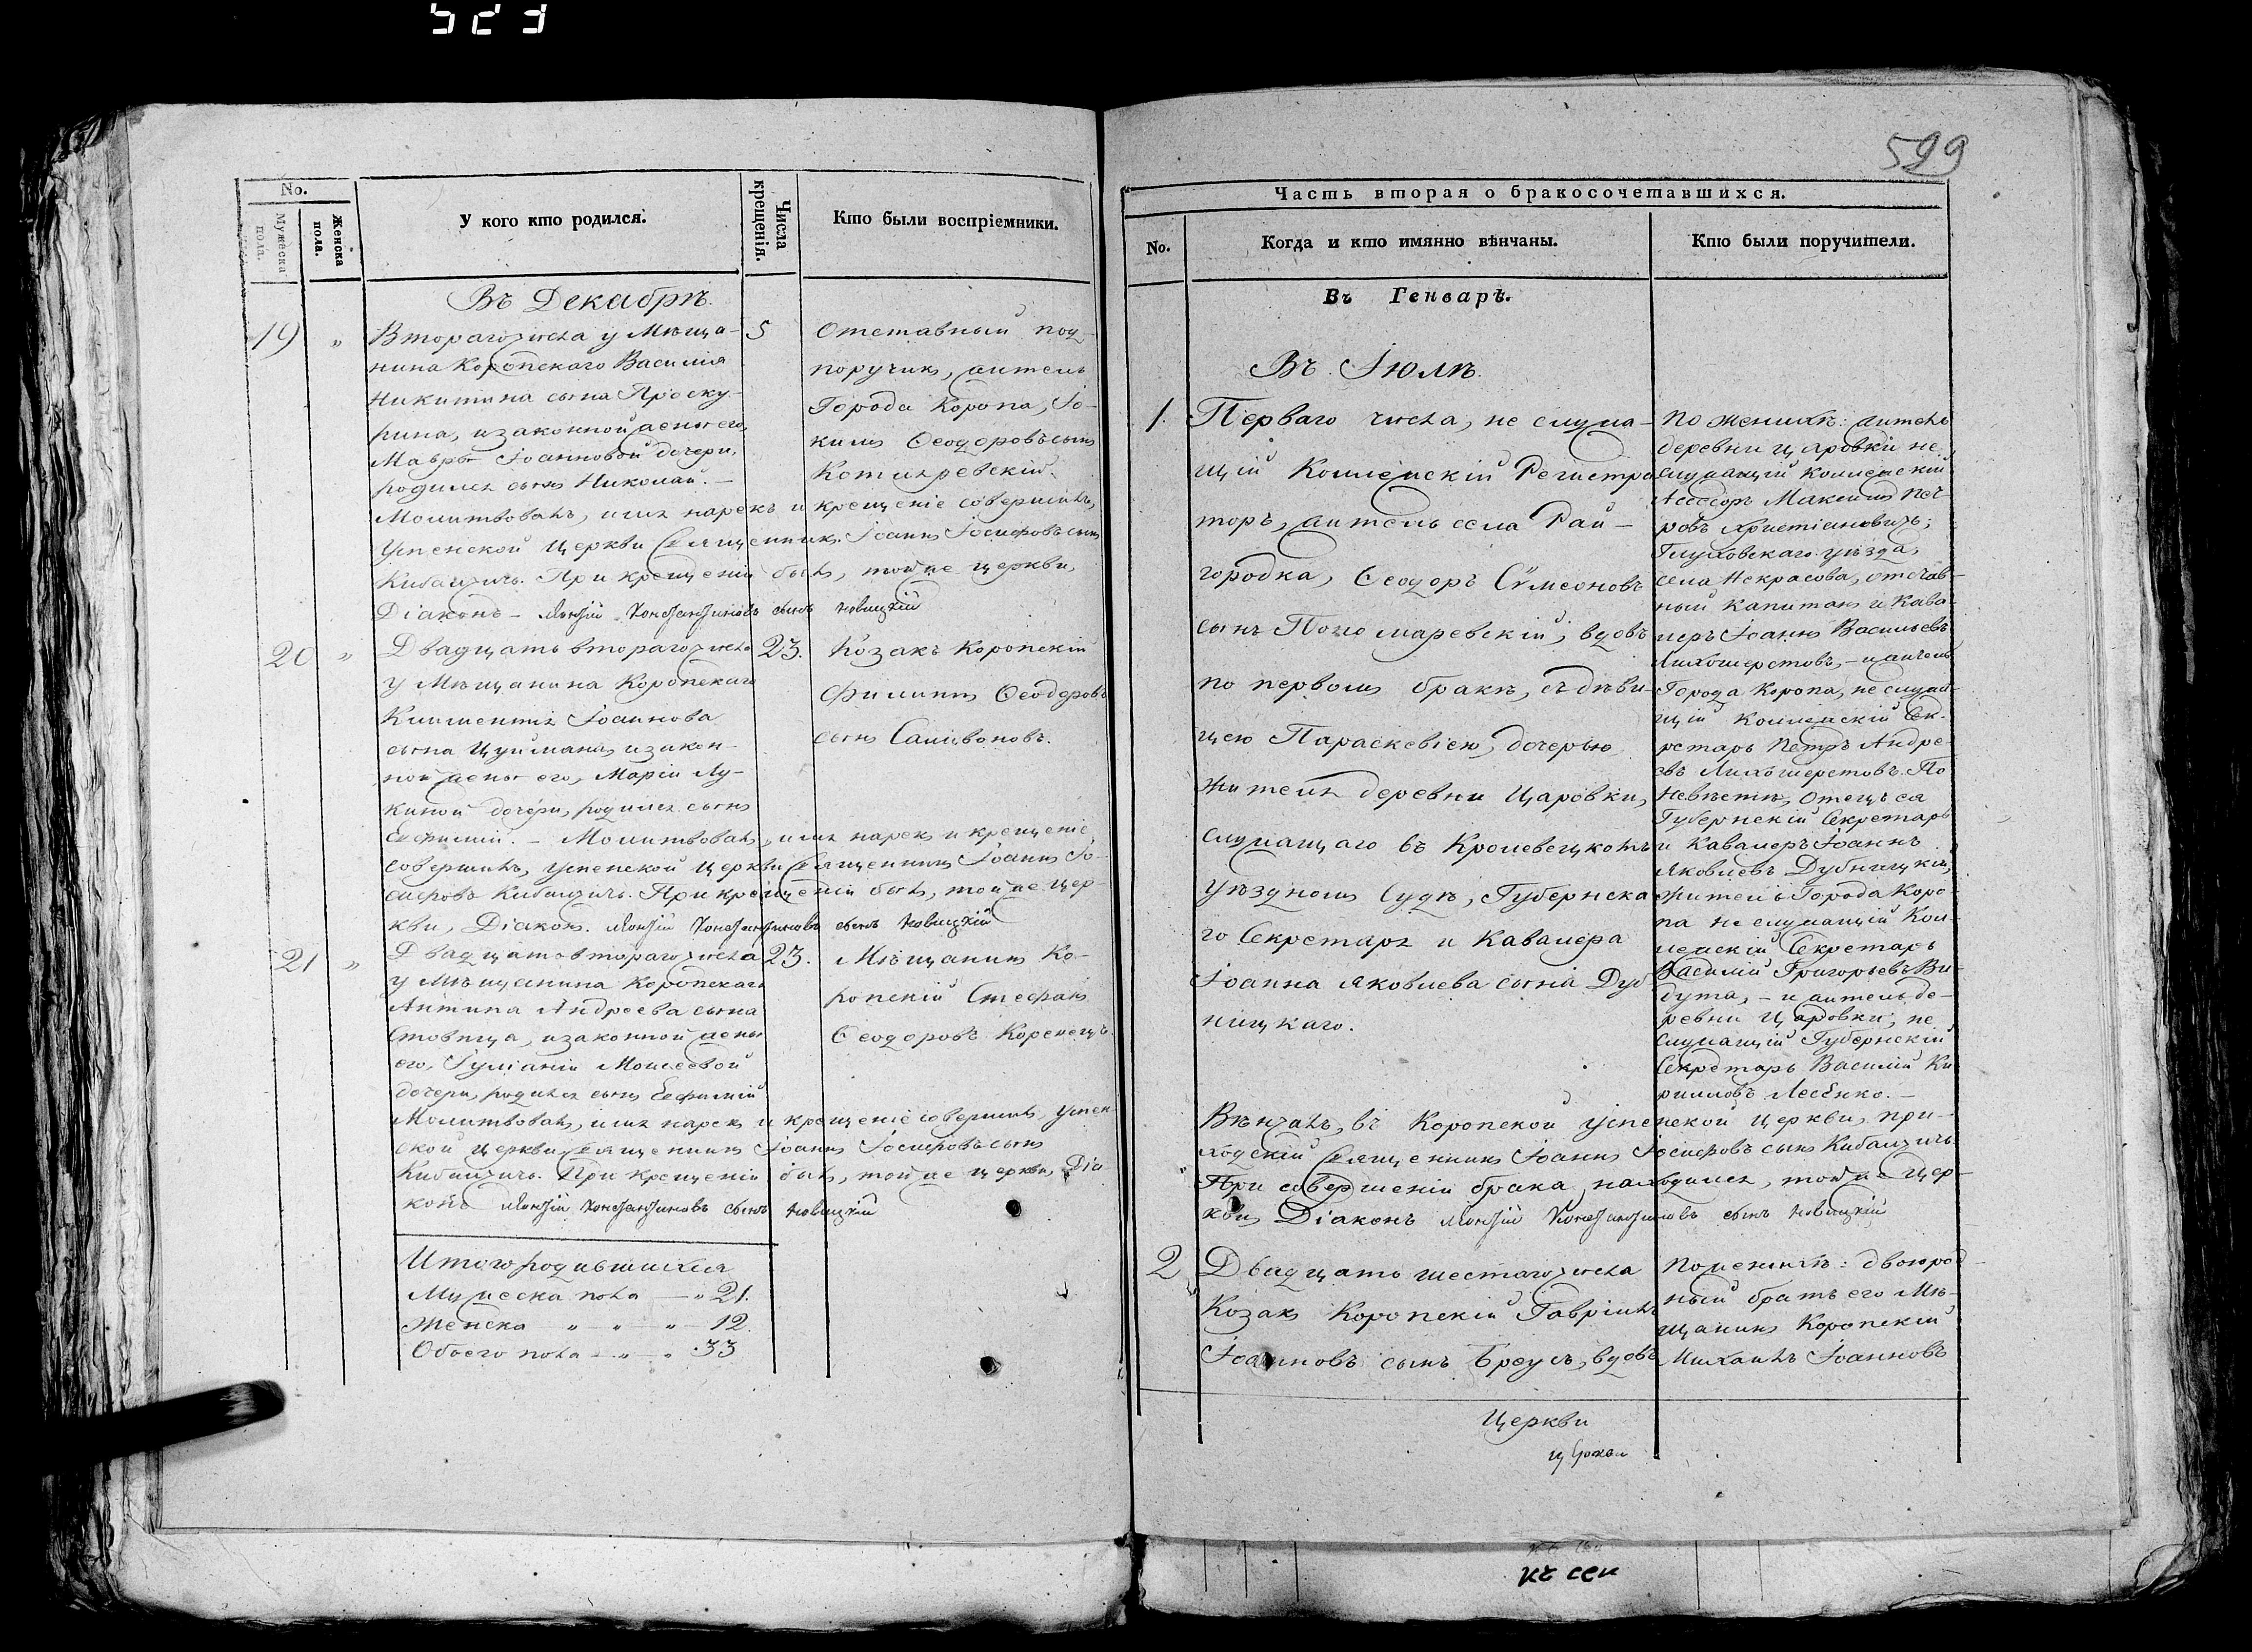 523
No.
Мужеска пола.
Женска пола.
У кого кто родился.
Числа крещенія.
Кто были воспріемники.
Въ Декабрѣ.
19 " Втораго числа у Мѣща- 5
нина Коропскаго Василія
Никитина сына Проску-
рина, и законной жены его,
Мавры Іоанновой дочери,
родился сынъ Николай. —
Отставный под-
поручик, житель
Города Коропа, Іо-
ким Ѳеодоровъ сынъ
Котляревскій.
Молитвовалъ, имя нарекъ и крещеніе совершилъ,
Успенской Церкви Священник Іоаннъ Іосифовъ сынъ
Кибальчичь. При крещеніи былъ, той же церкви,
Діаконъ — Константиновъ сынъ Новицкій
20 " Двадцать втораго числа 23.
у Мѣщанина Коропскаго
Климентія Іоаннова
сына Цуймана, и закон-
ной жены его, Маріи Лу-
киной дочери, родился сынъ
Козакъ Коропскій
Филиппъ Ѳеодоровъ
сынъ
Евфимій. — Молитвовалъ, имя нарекъ и крещеніе
совершилъ, Успенской Церкви Священникъ Іоаннъ Іо-
сифовъ Кибальчичь. При крещеніи былъ, той же Цер-
кви, Діаконъ. Константиновъ сынъ Новицкій
21 " Двадцать втораго числа 23.
у Мѣщанина Коропскаго
Антипа Андреева сына
и законной жены
его, Іуліаніи Моисеевой
дочери, родился сынъ Евфимій
Мѣщанинъ Ко-
ропскій Стефанъ
Ѳеодоровъ Коренецъ.
Молитвовалъ, имя нарекъ и крещеніе совершилъ, Успен-
ской Церкви Священникъ Іоаннъ Іосифовъ сынъ
Кибальчичь. При крещеніи былъ, той же церкви, Діа-
конъ Константиновъ сынъ Новицкій
Итого родившихся
Мужеска пола — " 21.
Женска " — " — " — 12.
Обоего пола — " — " . 33
599
Часть вторая о бракосочетавшихся.
No.
Когда и кто имянно вѣнчаны.
Кто были поручители.
Въ Генварѣ.
Въ Іюлѣ.
1. Перваго числа, не служа-
щій Коллежскій Регистра
торъ, житель села Рай-
городка, Ѳеодоръ Сѵмеоновъ
сынъ Пономаревскій, вдовъ
по первомъ бракѣ, съ дѣви-
цею Параскевіею, дочерью
жителя деревни Царовки,
служащаго въ Кролевецкомъ
уѣздномъ Судѣ, Губернска
го Секретаря и Кавалера
Іоанна Яковлева сына Дуб
ницкаго.
По женихѣ: житель
деревни Царовки не
служащій Коллежскій
Асессоръ Максимъ Пет-
ровъ Христіановичъ;
Глуховскаго уѣзда,
села Некрасова, отстав-
ный капитанъ и Кава-
леръ Іоаннъ Васильевъ
Лихошерстовъ, — и житель
Города Коропа, не служа-
щій Коллежскій Сек-
ретарь Петръ Андре-
евъ Лихошерстовъ. По
Невѣстѣ, Отецъ ея
Губернскій Секретарь
и Кавалеръ Іоаннъ
Яковлевъ Дубницкій,
житель Города Коро-
па не служащій Кол-
лежскій Секретарь
Василій Григорьевъ Ви-
бута, — и житель де-
ревни Царовки, не
служащій Губернскій
Секретарь Василій Ки-
рилловъ Лесенко. —
Вѣнчалъ, въ Коропской Успенской Церкви, при-
ходскій Священникъ Іоаннъ Іосифовъ сынъ Кибальчичь.
При совершеніи брака находился, той же Цер-
кви, Діаконъ Константиновъ сынъ Новицкій
2 Двадцать шестаго числа
Козакъ Коропскій Гавріилъ
Іоанновъ сынъ Бреусъ, вдовъ
По женихѣ: двоюрод-
ный братъ его Мѣ-
щанинъ Коропскій
Михаилъ Іоанновъ
Церкви
церкви
къ сей